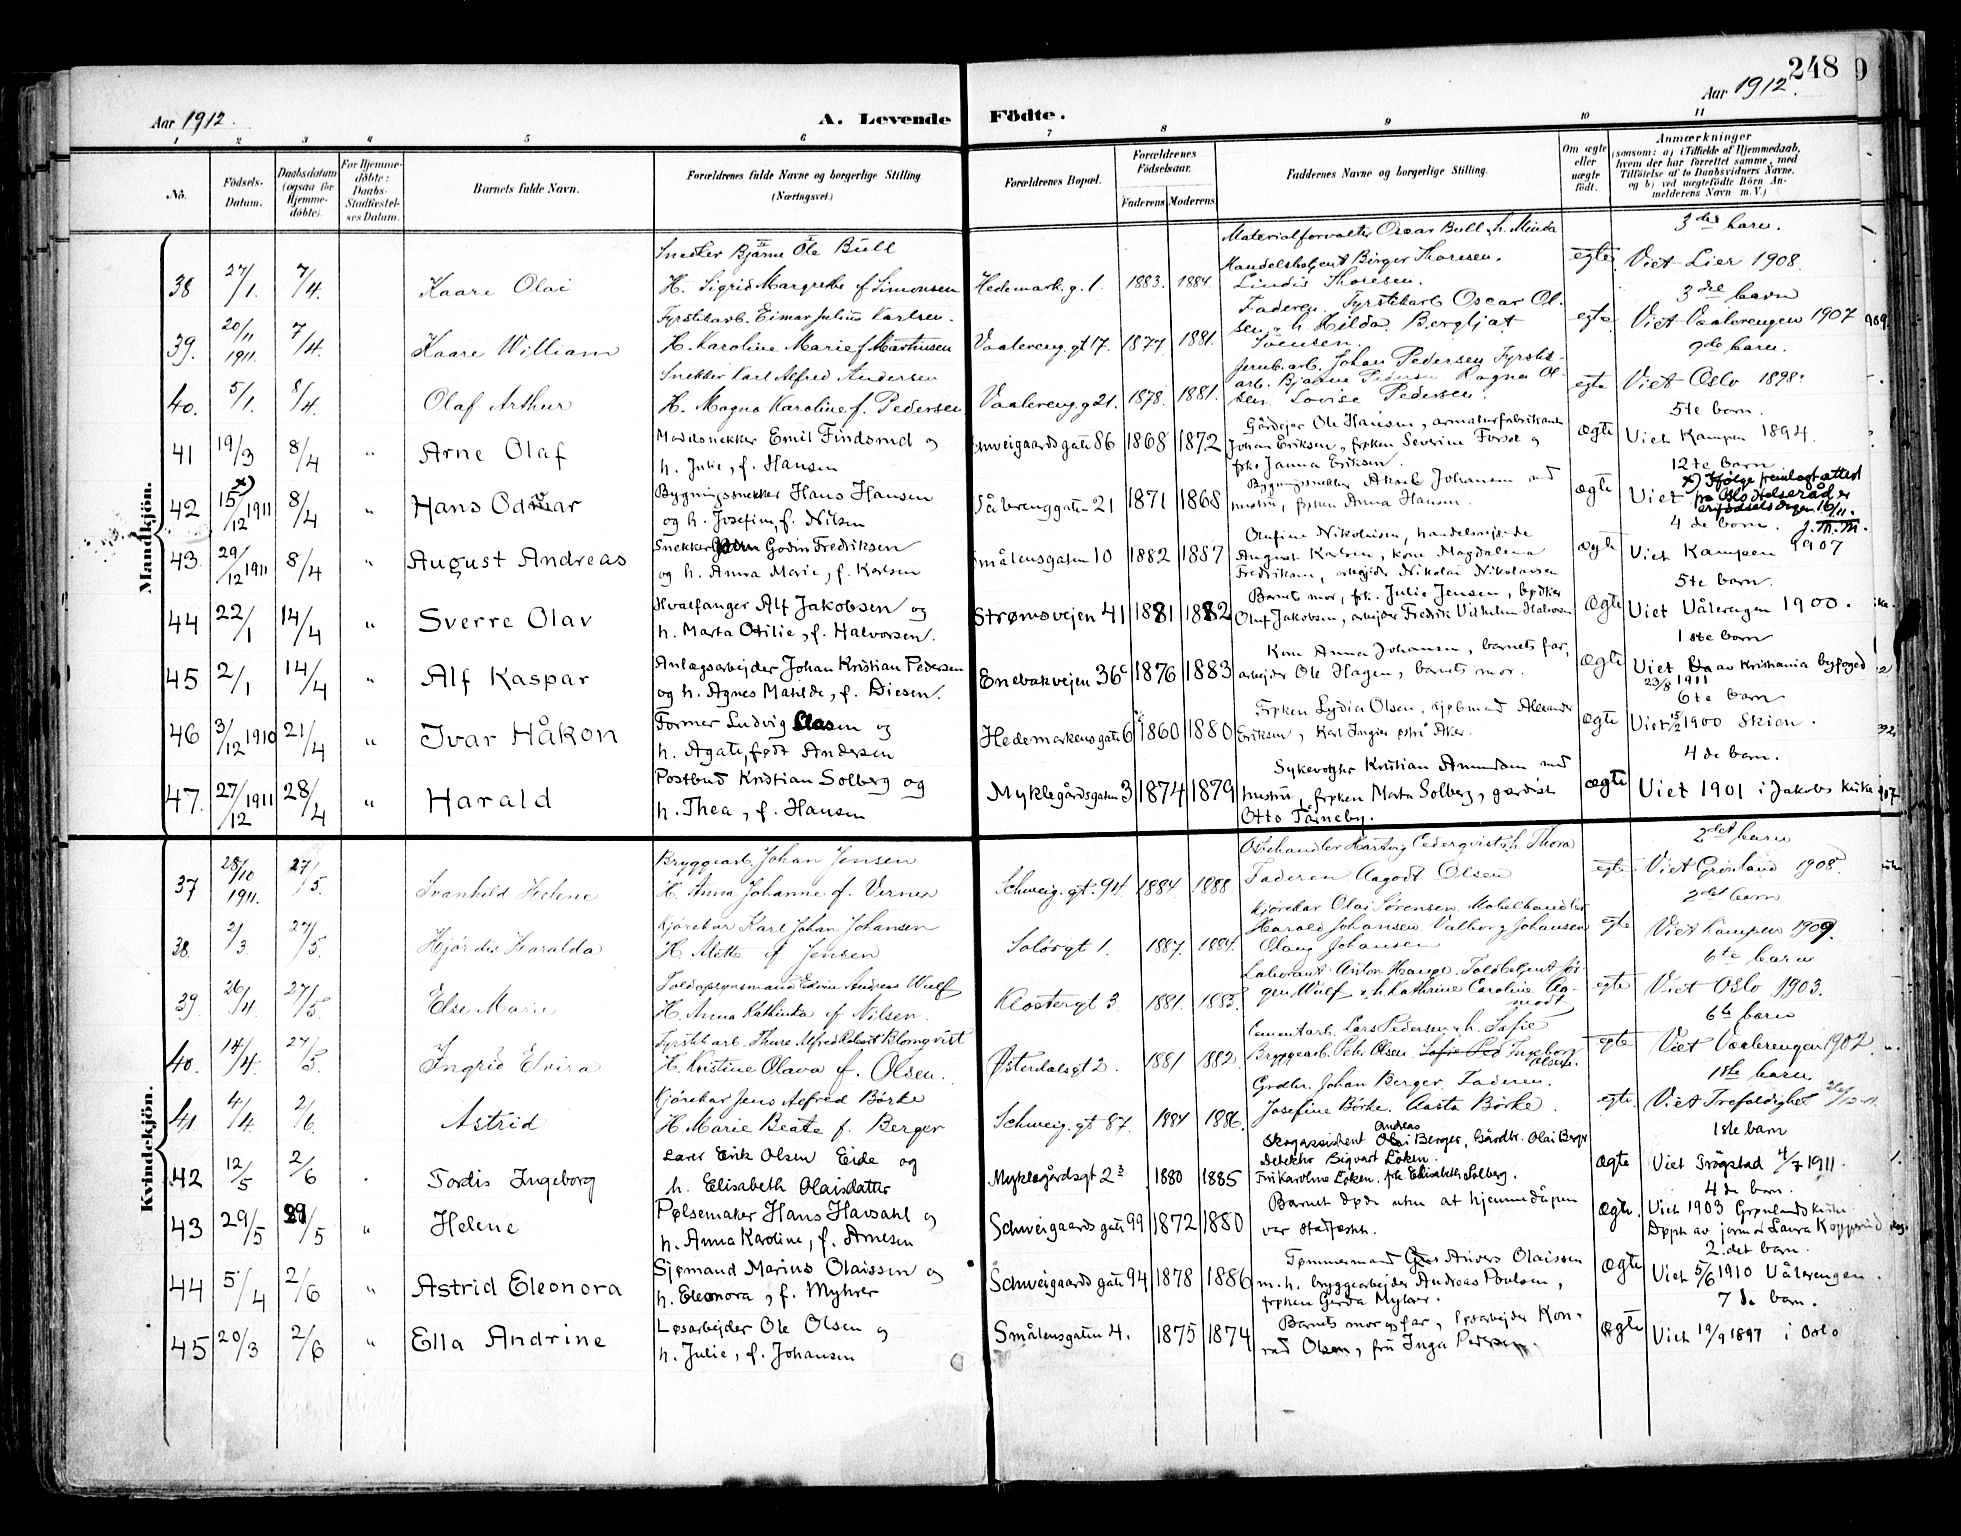 248
Aar 1912.
A. Levende Födte.
Aar 1912.
1 2 3 4 5 6 7 8 9 10 11
No.
Födsels-Datum.
Daabsdatum (ogsaa for Hjemme-döbte).
For Hjemme-döbte: Daabs-Stadfæstel-ses Datum.
Barnets fulde Navn.
Forældrenes fulde Navne og borgerlige Stilling (Næringsvei.)
Forældrenes Bopæl.
Forældrenes Födselsaar.
Faderens Moderens
Faddernes Navne og borgerlige Stilling.
Om ægte eller uægte födt.
Anmærkninger
(saasom: a) i Tilfælde af Hjemmedaab, hvem der har forrettet samme, med Tilföielse af to Daabsvidners Navne, og b) ved uegtefödte Börn An-melderens Navn m. V.)
Mandkjön.
38 27/1. 7/4. Kaare Olai
Snekker Bjarne Ole Bull
H. Sigrid Margrethe f Simonsen
Hedemark.g. 1. 1883. 1884.
Materialforvalter Oscar Bull, h. Minda
Handelsbetjent Birger Thoresen.
Lindis Thoresen.
egte
3die barn.
Viet Lier 1908.
39. 20/11 1911. 7/4. Kaare William
Fyrstikarb. Eimar Julius Karlsen.
H. Karoline Marie f Martinsen
Vaalereng.gt 17. 1877 1881.
Faderen. Fyrstikarb Oscar Ol-
sen, h. Hilda. Bergljot
Svensen.
egte
3die barn
Viet Vaalerengen 1907
40. 5/1. 8/4. Olaf Arthur
Snekker Karl Alfred Andersen
H. Magna Karoline f. Pedersen
Vaalereng.g 21. 1878. 1881.
Jernb.arb. Johan Pedersen Fyrstik-
arb. Bjarne Pedersen Ragna Ol-
sen. Lovise Pedersen.
egte
9de barn.
Viet Oslo 1898.
41 19/3 8/4 " Arne Olaf
Modelsnekker Emil Findsrud og
h. Julie, f. Hansen
Schweigaards gate 86 1868 1872
Gårdejer Ole Hansen, armaturfabrikant
Johan Eriksen, frøken Severine Fossel og
frk. Janna Eriksen.
ægte
5te barn.
Viet Kampen 1894.
42 x) 15/12 1911 8/4 " Hans Odmar
Bygningssnekker Hans Hansen
og h. Josefine, f. Nilsen
Vålerenggaten 21 1871 1868
Bygningssnekker Akarb Johansen med
hustru, frøken Anna Hansen.
ægte
12te barn
Viet
x) Ifølge fremlagt attest
på Oslo Helseråd er
fødselsdagen 16/11.
J.M.M.
43 29/12 1911 8/4 " August Andreas
Snekker Godin Fredriksen
og h. Anna Marie, f. Karlsen
Smålensgaten 10 1882 1887
Olufine Nikolaisen, handelsrejsende
August Karlsen, kone Magdalena
Fredriksen, arbejder Nikolai Nikolaisen
ægte
4de barn.
Viet Kampen 1907
44 22/1 14/4 " Sverre Olav
Hvalfanger Alf Jakobsen og
h. Marta Otilie, f. Halvorsen.
Strømsvejen 41 1881 1882
Barnets mor, frk. Julie Jensen, bødker
Oluf Jakobsen, arbejder Fredrik Vilhelm Halvorsen
ægte
5te barn.
Viet Vålerengen 1900.
45 2/1 14/4 " Alf Kaspar
Anlægsarbejder Johan Kristian Pedersen
og h. Agnes Matilde, f. Diesen.
Enebakvejen 36c 1876 1883
Kone Anna Johansen, barnets far,
arbejder Ole Hagen, barnets mor.
ægte
1ste barn
Viet av Kristiania byfoged
23/8 1911
46 3/12 1910 21/4 " Ivar Håkon
Former Ludvig Olsen og
h. Agate, født Andersen
Hedemarkens gate 6 1860 1880
Frøken Lydia Olsen, kjøbmand Alexander
Eriksen, Karl Ingier østre Aker.
ægte
6te barn
Viet 15/2 1900 Skien.
47. 27/12 1911 28/4 " Harald
Postbud Kristian Solberg og
h. Thea, f. Hansen
Myklegårdsgaten 3 1874 1879
Sykevogter Kristian Amundsen med
hustru, frøken Marta Solberg, gardist
Otto Tårneby.
ægte
4de barn.
Viet 1901 i Jakobs kirke
Kvindekjön.
37 28/10 1911. 27/5. Svanhild Helene
Bryggearb. Johan Jensen
H. Anna Johanne f. Verner
Schweig. gt. 94. 1884. 1888
Ostehandler Hartvig Cederqvist, h. Thora
Faderen Aagodt Olsen
egte
2det barn
Viet Grønland 1908.
38. 2/3 27/5. Hjördis Haralda
Kjørekar Karl Johan Johansen
H. Alette f Jensen
Solørgt 1. 1887. 1884.
Kjørekar Olai Sørensen. Møbelhandler
Harald Johansen. Valborg Johansen
Olaug Johansen
egte
2det barn
Viet Kampen 1909.
39. 26/4. 27/5. Else Marie
Toldopsynsmand Edvin Andreas Wulf
H. Anna Kathinka f Nilsen.
Klostergt 3 1881. 1883.
Laborant Anton Hauge. Toldbetjent Jör-
gen Wulf, h Kathrine Caroline Aa-
modt
egte
6te barn
Viet Oslo 1903.
40. 14/4. 27/5. Ingrid Elvira
Fyrstikarb. Thure Alfred Robert Blomqvist
H. Kristine Olava f. Olsen.
Østerdalsgt 2. 1881 1882.
Cementarb. Lars Pedersen, h. Sofie
Bryggearb. Petr. Olsen. Sofie Ped Ingeborg
Olsen.
egte
6te barn
Viet Vaalerengen 1902.
41. 4/4. 2/6. Astrid
Kjørekar Jens Alfred Börke
H. Marie Beate f. Berger
Schweig. gt 87. 1884 1886.
Grdbr. Johan Berger. Faderen.
Josefine Börke. Aasta Börke.
egte.
1ste barn
Viet Trefoldighet
42 12/5 2/6 Tordis Ingeborg
Lærer Erik Olsen Eide og
h. Elisabeth Olaisdatter
Myklegårdsgt 23 1880 1885
Skogassistent Andreas Berger, Gårdbr. Olai Berger
Detektiv Sigvart Løken.
Fru Karoline Løken. frk. Elisabeth Solberg.
ægte
1ste barn
Viet Trögstad 4/7 1911.
43 29/5 29/5 " Helene
Pølsemaker Hans Havsahl og
h. Anna Karoline, f. Arnesen
Schweigaards gate 99 1872 1880
Barnet døde uten at hjemmedåpen
var stadfæstet.
ægte.
4de barn.
Viet 1903 Grønlands kirke
Døpt av jormor Laura Kopperud
44 5/4 2/6 " Astrid Eleonora
Sjømand Marius Olaissen og
h. Eleonora, f. Myhrer
Schweigaards gate 94 1878 1886
Tømmermand Anders Olaissen
m. h. bryggearbejder Andreas Poulsen,
frøken Gerda Myhrer.
ægte
2det barn.
Viet 5/6 1910 Vålerengen.
45 20/3 2/6 " Ella Andrine
Løsarbejder Ole Olsen og
h. Julie, f. Johansen
Smålensgaten 4. 1875 1874
Barnets mor og far, løsarbejder Kon-
rad Olsen, fru Inga Pedersen.
ægte
7de barn.
Viet 19/9 1897 i Oslo